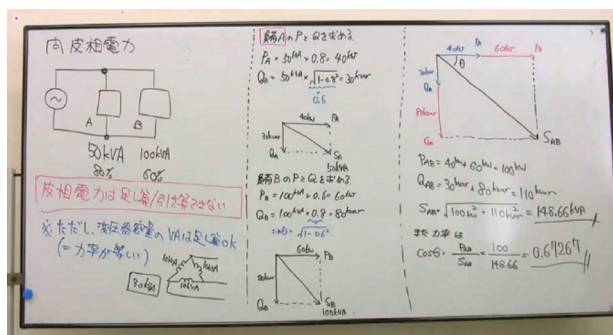 問 皮相電力
A
B
50kVA 100kVA
80% 60%
皮相電力は足し算/引き算できない
※ただし、変圧器容量のVAは足し算OK
(= 力率が等しい)
10kVA
10kVA
10kVA
30kVA
負荷AのPとQを求める。
PA = 50kVA × 0.8 = 40kW
QA = 50kVA × √1-0.8² = 30kvar
0.6
40kW
PA
30kvar
QA
SA
50kVA
負荷BのPとQを求める。
PB = 100kVA × 0.6 = 60kW
QB = 100kVA × 0.8 = 80kvar
sinθ = √1-0.6²
60kW
PB
80kvar
QB
SB
100kVA
40kW
PA
60kW
PB
θ
30kvar
QA
80kvar
QB
SAB
PAB = 40kW + 60kW = 100kW
QAB = 30kvar + 80kvar = 110kvar
SAB = √100kW² + 110kvar² = 148.66kVA
また力率は
cosθ = PAB/SAB = 100/148.66 = 0.67267